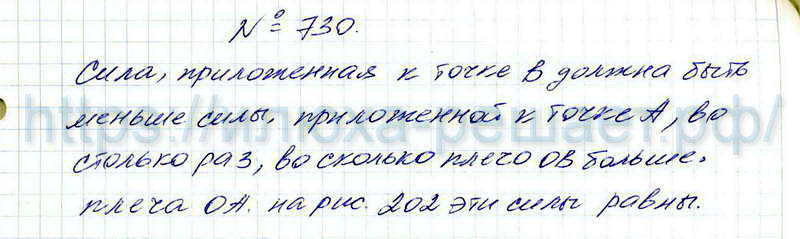 № 730.
Сила, приложенная к точке В должна быть
меньше силы, приложенной к точке А, во
столько раз, во сколько плечо ОВ больше.
плеча ОА. на рис. 202 эти силы равны.